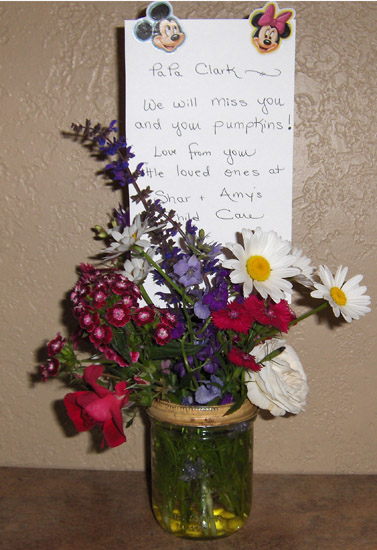 PaPa Clark
We will miss you
and your pumpkins!
Love from your
little loved ones at
Shar + Amy's
Child Care